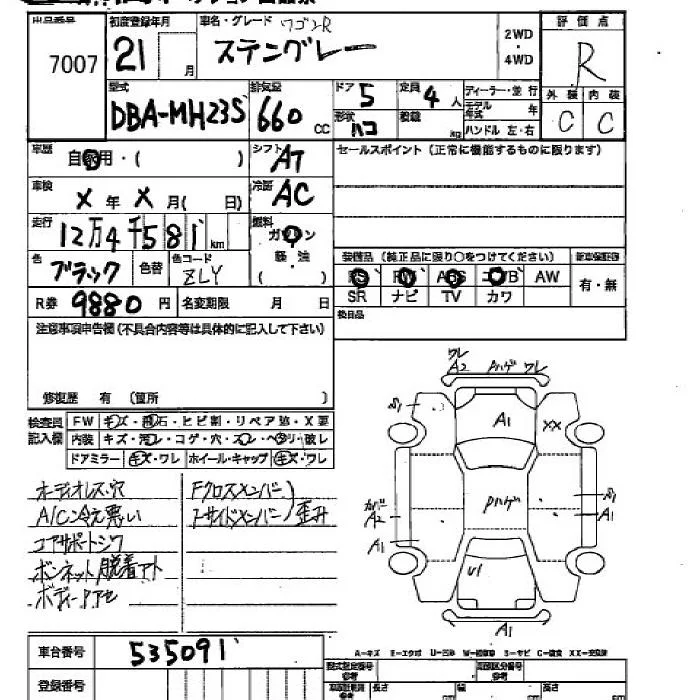 出品番号 初度登録年月 車名・グレード ワゴンR 評価点
7007 21 月 スティングレー 2WD・4WD R
型式 排気量 ドア 5 定員 4 人 ディーラー・並行 外装 内装
DBA-MH23S 660 cc 形状 ハコ 積載 kg モデル年式 年 ハンドル 左・右 C C
車歴 自家用・( ) シフト AT セールスポイント(正常に機能するものに限ります)
車検 X 年 X 月( 日) 冷房 AC
走行 12万4千581 km 燃料 ガソリン
色 ブラック 色替 色コード ZLY (軽・油) 装備品(純正品に限り○をつけてください) 新車保証書
PS PW ABS エアB AW 有・無
R券 9880 円 名変期限 月 日 SR ナビ TV カワ
注意事項申告欄(不具合内容等は具体的に記入して下さい) 後日品
修復歴 有 (箇所 )
検査員記入欄 FW キズ・飛石・ヒビ割・リペア跡・X要
内装 キズ・汚レ・コゲ・穴・スレ・ヘタリ・破レ
ドアミラー キズ・ワレ ホイール・キャップ キズ・ワレ
オーディオレス・穴 Fクロスメンバー
A/C冷え悪い Fサイドメンバー 歪み
コアサポートシワ
ボンネット脱着アト
ボディーアセ
ワレ
A2 Pハゲ ワレ
A1 XX
Pハゲ
カバー A2 A1
A1
U1
A1
A-キズ E-エクボ U-凹み S-サビ C-腐食 XX-交換済
車台番号 535091
登録番号 型式指定番号 類別区分番号
長さ cm 幅 cm 高さ cm